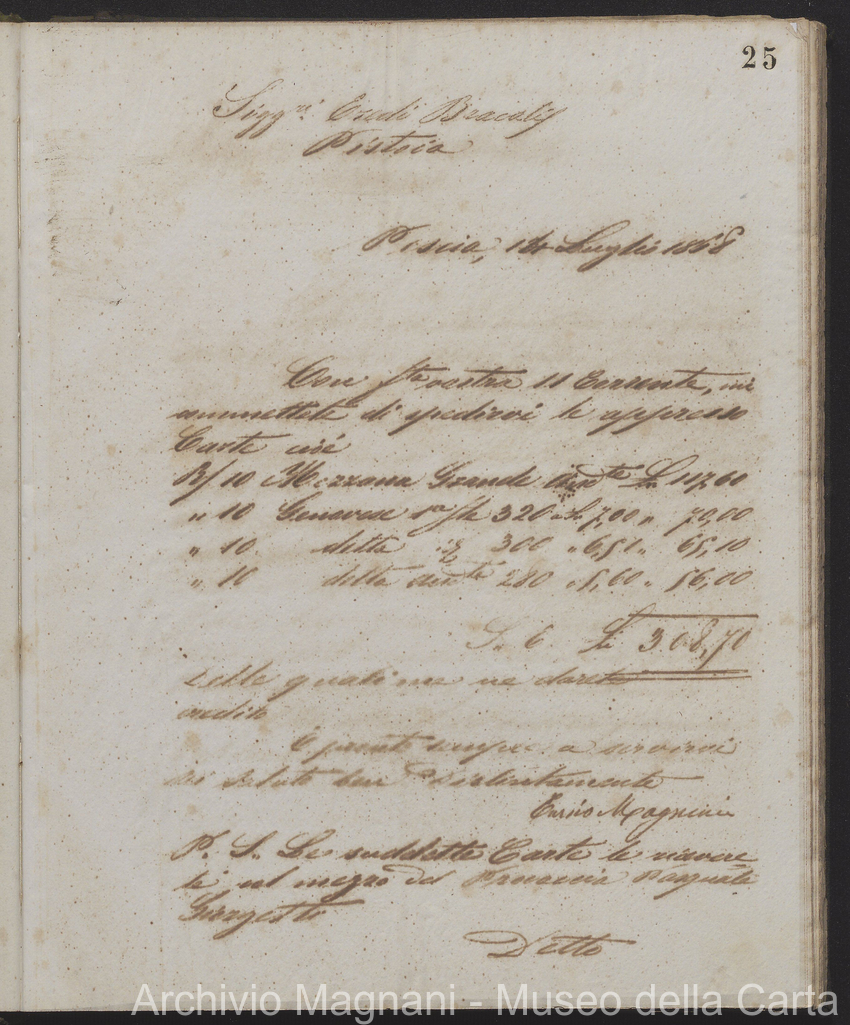 25
Sigg.ri Eredi Bracali
Pistoia
Pescia, 14 Luglio 1868
Con f.ta vostra 11 Corrente, mi
commettete di spedirvi le appresso
Carte cioè
R/ 10 Mezzana Grande £ 117,60
" 10 Genovese 1a 320 £ 7,00 " 70,00
" 10 detta 300 " 6,51 " 65,10
" 10 detta 280 " 5,60 " 56,00
S. C. £ 308,70
Delle quali me ne darete
credito
E pronto sempre a servirvi
vi saluto ben distintamente
Enrico Magnani
P. S. Le suddette Carte le riceverete
nel mezzo del Pasquale
Detto
Archivio Magnani - Museo della Carta